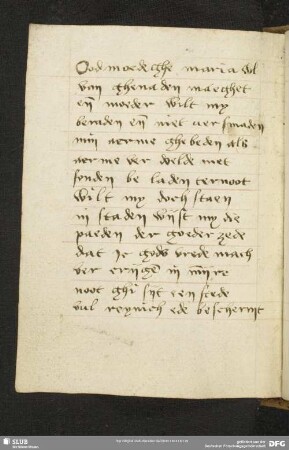 Ood moedeghe maria vol
van ghenaden maeghet
en̄ moeder wilt my
beraden en̄ niet versmaden
min aerme ghebeden als
aerme ver velde met
sonden be laden ter noot
wilt my doch staen
in staden wijst my die
paeden der goeder zede
dat ic gods vrede mach
ver crigē in mire
noot ghi sijt een stede
vul reynich ede beschermt
SLUB
DFG